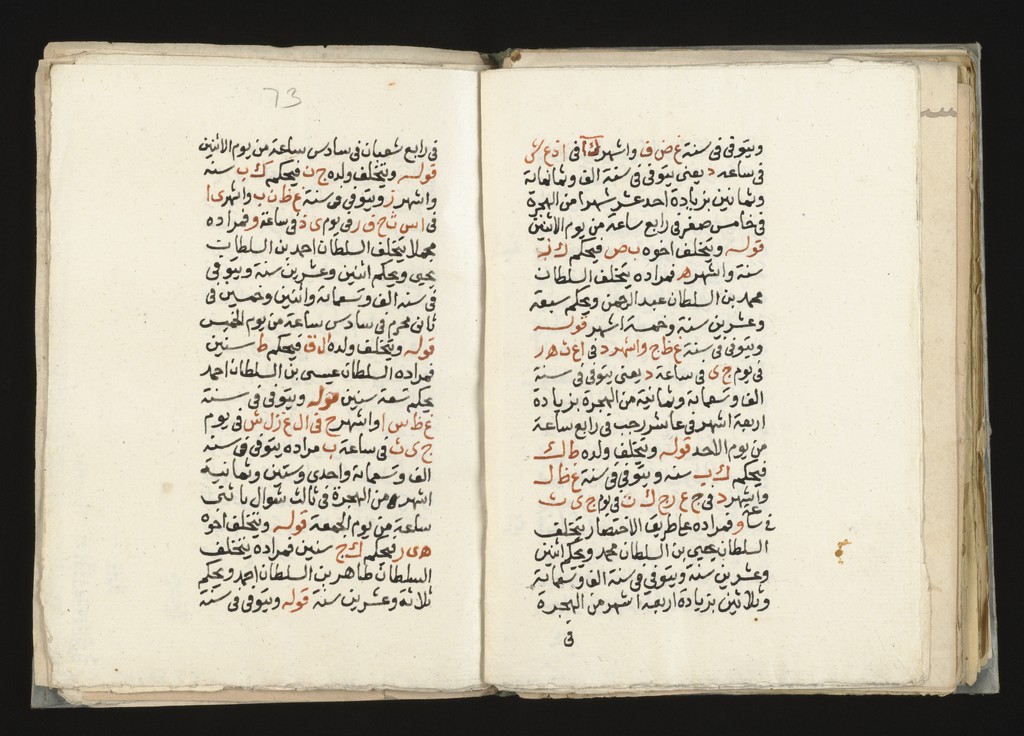 ويتوفى فى سنة غ ض ف واشهر ك ا فى ا ذ غ ش
فى ساعه د يعنى يتوفى فى سنة الف وثمانمائة
وثمانين بزيادة احد عشر شهرا من الهجرة
فى خامس صفر فى رابع ساعة من يوم الاثنين
قوله ويتخلف اخوه ب ص فيحكم ك ب
سنة واشهر ه فمراده يتخلف السلطان
محمد بن السلطان عبد الرحمن ويحكم سبعة
وعشرين سنة وخمسة اشهر قوله
ويتوفى فى سنة غ ظ ح واشهر د فى
فى يوم ج ى فى ساعة د يعنى يتوفى فى سنة
الف وتسعمائة وثمانية من الهجرة بزيادة
اربعة اشهر فى عاشر رجب فى رابع ساعة
من يوم الاحد قوله ويتخلف ولده ط ا ك
فيحكم ك ب سنه ويتوفى فى سنة غ ظ ا ل
واشهر د فى ج ع ر ج ك ت فى يوم ج ى ث
فى ساعة و فمراده على طريق الاختصار يتخلف
السلطان يحيى بن السلطان محمد ويحكم اثنين
وعشرين سنة ويتوفى فى سنة الف وتسعمائة
وثلاثين بزيادة اربعة اشهر من الهجرة
فى
73
فى رابع شعبان فى سادس ساعة من يوم الاثنين
قوله ويتخلف ولده ج ن فيحكم ك ب سنة
واشهر ز ويتوفى فى سنة غ ظ ن ب واشهر ى ا
فى ا س ث ح ق ر فى يوم ى ذ فى ساعة و فمراده
مجملا يتخلف السلطان احمد بن السلطان
يحيى ويحكم اثنين وعشرين سنة ويتوفى
فى سنة الف وتسعمائة واثنين وخمسين فى
ثانى محرم فى سادس ساعة من يوم الخميس
قوله ويتخلف ولده ال ق فيحكم ط سنين
فمراده السلطان عيسى بن السلطان احمد
يحكم تسعة سنين قوله ويتوفى فى سنة
غ ظ س ا واشهر ح فى ال غ ز ل ش فى يوم
ج ى ث فى ساعة ب مراده يتوفى فى سنة
الف وتسعمائة واحدى وستين وثمانية
اشهر من الهجرة فى ثالث شوال با ثنى
ساعة من يوم الجمعة قوله ويتخلف اخوه
ه ى ر فيحكم ك ج سنين فمراده يتخلف
السلطان طاهر بن السلطان احمد ويحكم
ثلاثة وعشرين سنة قوله ويتوفى فى سنة